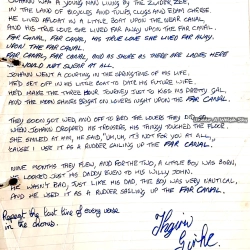 JOHANN WAS A YOUNG MAN LIVING BY THE ZUIDER ZEE,
IN THE LAND OF BICYCLES AND TULIPS, CLOGS AND EDAM CHEESE.
HE LIVED AFLOAT IN A LITTLE BOAT UPON THE CANAL
AND HIS TRUE LOVE SHE LIVED FAR AWAY UPON THE FAR CANAL.
FAR CANAL, FAR CANAL, HIS TRUE LOVE SHE LIVED FAR AWAY
UPON THE FAR CANAL.
FAR CANAL, FAR CANAL AND AS SURE AS THERE ARE LADIES HERE
I WOULD NOT SWEAR AT ALL.
JOHANN WENT A COURTING IN THE SPRINGTIME OF HIS LIFE,
HE'D SET OFF IN HIS LITTLE BOAT TO DATE HIS FUTURE WIFE.
HE'D MAKE THE THREE HOUR JOURNEY JUST TO KISS HIS PRETTY GAL,
AND THE MOON SHINES BRIGHT ON LOVERS NIGHT UPON THE FAR CANAL.
THEY SOON GOT WED, AND OFF TO BED THE LOVERS THEY DID
WHEN JOHANN DROPPED HIS TROUSERS, HIS THINGY TOUCHED THE FLOOR,
SHE SMILED AT HIM, HE SAID, "UH, UH, IT'S NOT FOR YOU AT ALL,
'CAUSE I USE IT AS A RUDDER SAILING UP THE FAR CANAL.
NINE MONTHS THEY FLEW, AND FOR THE TWO, A LITTLE BOY WAS BORN,
HE LOOKED JUST HIS DADDY EVEN TO HIS WILLY JOHN.
HE WASN'T BAD, JUST LIKE HIS DAD, THE BOY WAS VERY NAUTICAL,
AND HE USED IT AS A RUDDER SAILING UP THE FAR CANAL.
Repeat the last line of every verse
in the chorus.